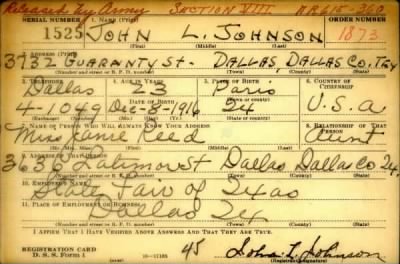 Released by Army Section VIII AR615-360
SERIAL NUMBER 1. NAME (Print) ORDER NUMBER
1525 JOHN L. JOHNSON 1873
(First) (Middle) (Last)
3732 GUARANTY St. DALLAS, DALLAS CO. TEX
(Number and street or R. F. D. number) (Town) (County) (State)
3. TELEPHONE 4. AGE IN YEARS 5. PLACE OF BIRTH 6. COUNTRY OF CITIZENSHIP
Dallas 23 Paris
4-1049 Dec-8-1916 Tex U.S.A
7. NAME OF PERSON WHO WILL ALWAYS KNOW YOUR ADDRESS 8. RELATIONSHIP OF THAT PERSON
Miss Reed Aunt
9. ADDRESS OF THAT PERSON
St Dallas Dallas Co
(Number and street or R. F. D. number) (Town) (County) (State)
10. EMPLOYER'S NAME
State Fair of Texas
11. PLACE OF EMPLOYMENT OR BUSINESS
Dallas Tex
(Number and street or R. F. D. number) (Town) (County) (State)
I AFFIRM THAT I HAVE VERIFIED ABOVE ANSWERS AND THAT THEY ARE TRUE.
REGISTRATION CARD
D. S. S. Form 1 45 John L. Johnson